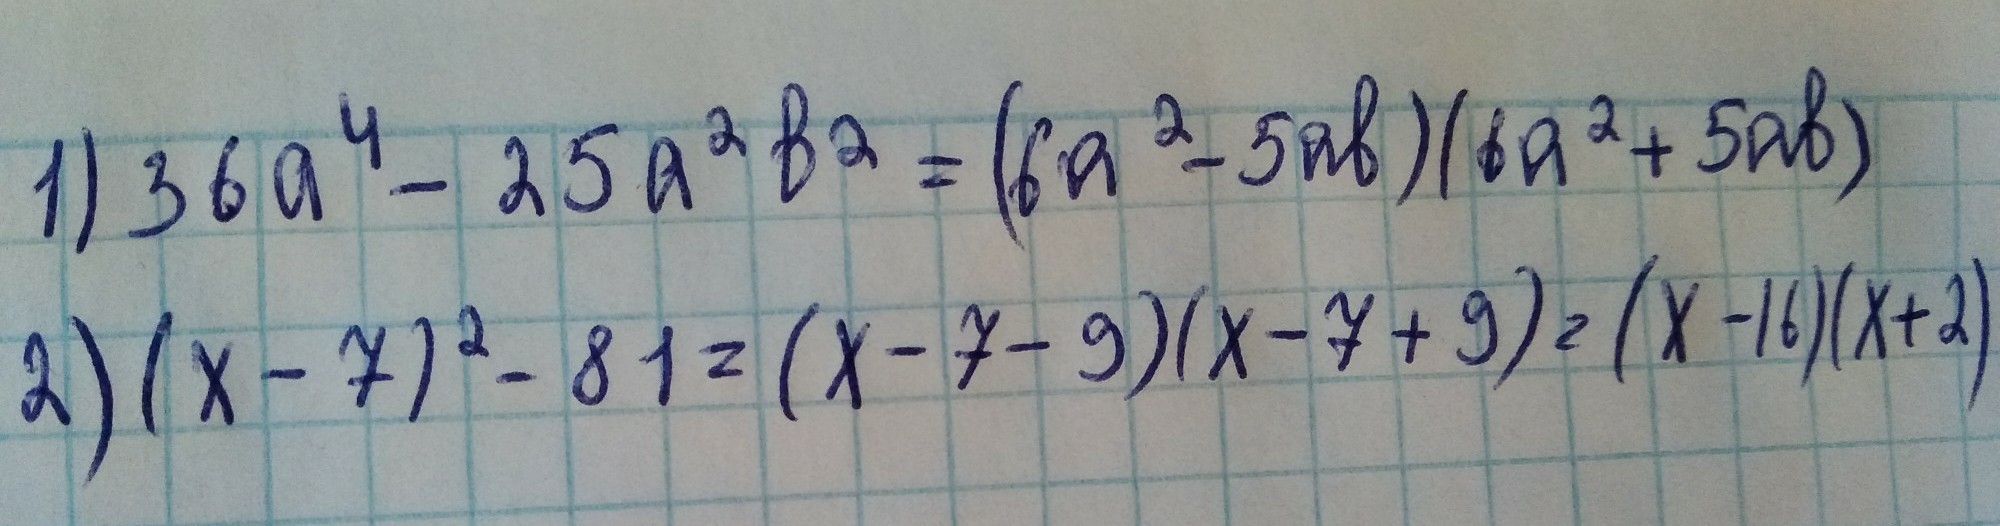 1) 36a⁴ - 25a²b² = (6a² - 5ab)(6a² + 5ab)
2) (x - 7)² - 81 = (x - 7 - 9)(x - 7 + 9) = (x - 16)(x + 2)